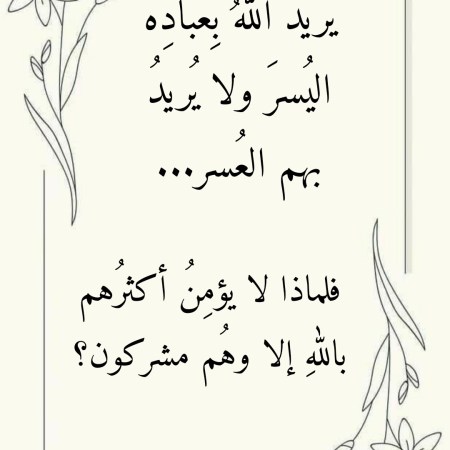 يريد اللهُ بِعبادِه
اليُسرَ ولا يُريدُ
بهم العُسر...
فلماذا لا يؤمِنُ أكثرُهم
باللهِ إلا وهُم مشركون؟